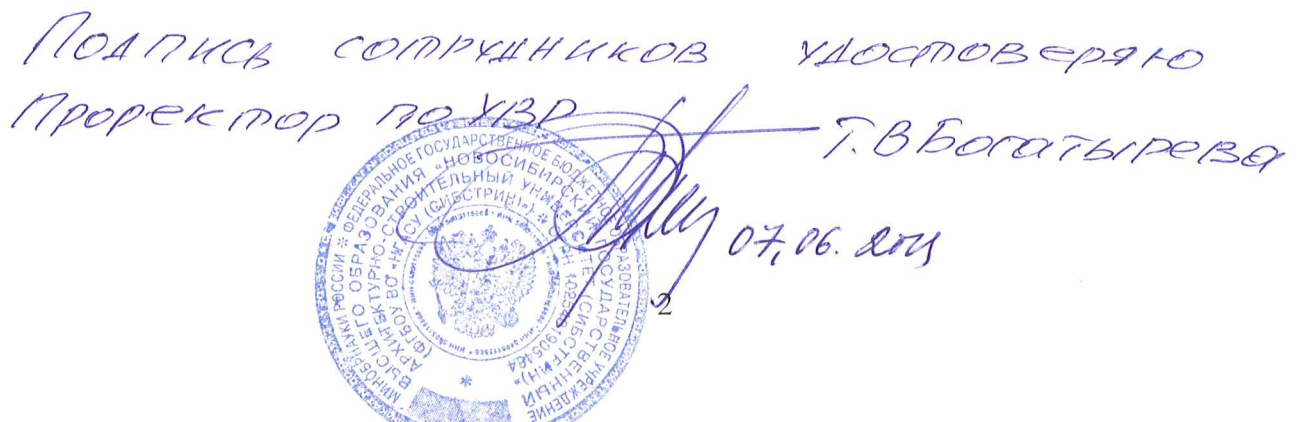 Подпись сотрудников удостоверяю
Проректор по УВР
Т.В Богатырева
07.06.
2
МИНОБРНАУКИ РОССИИ * ФЕДЕРАЛЬНОЕ ГОСУДАРСТВЕННОЕ БЮДЖЕТНОЕ ОБРАЗОВАТЕЛЬНОЕ УЧРЕЖДЕНИЕ
ВЫСШЕГО ОБРАЗОВАНИЯ «НОВОСИБИРСКИЙ ГОСУДАРСТВЕННЫЙ
АРХИТЕКТУРНО-СТРОИТЕЛЬНЫЙ УНИВЕРСИТЕТ (СИБСТРИН)»
(ФГБОУ ВО «НГАСУ (СИБСТРИН)») * ОГРН